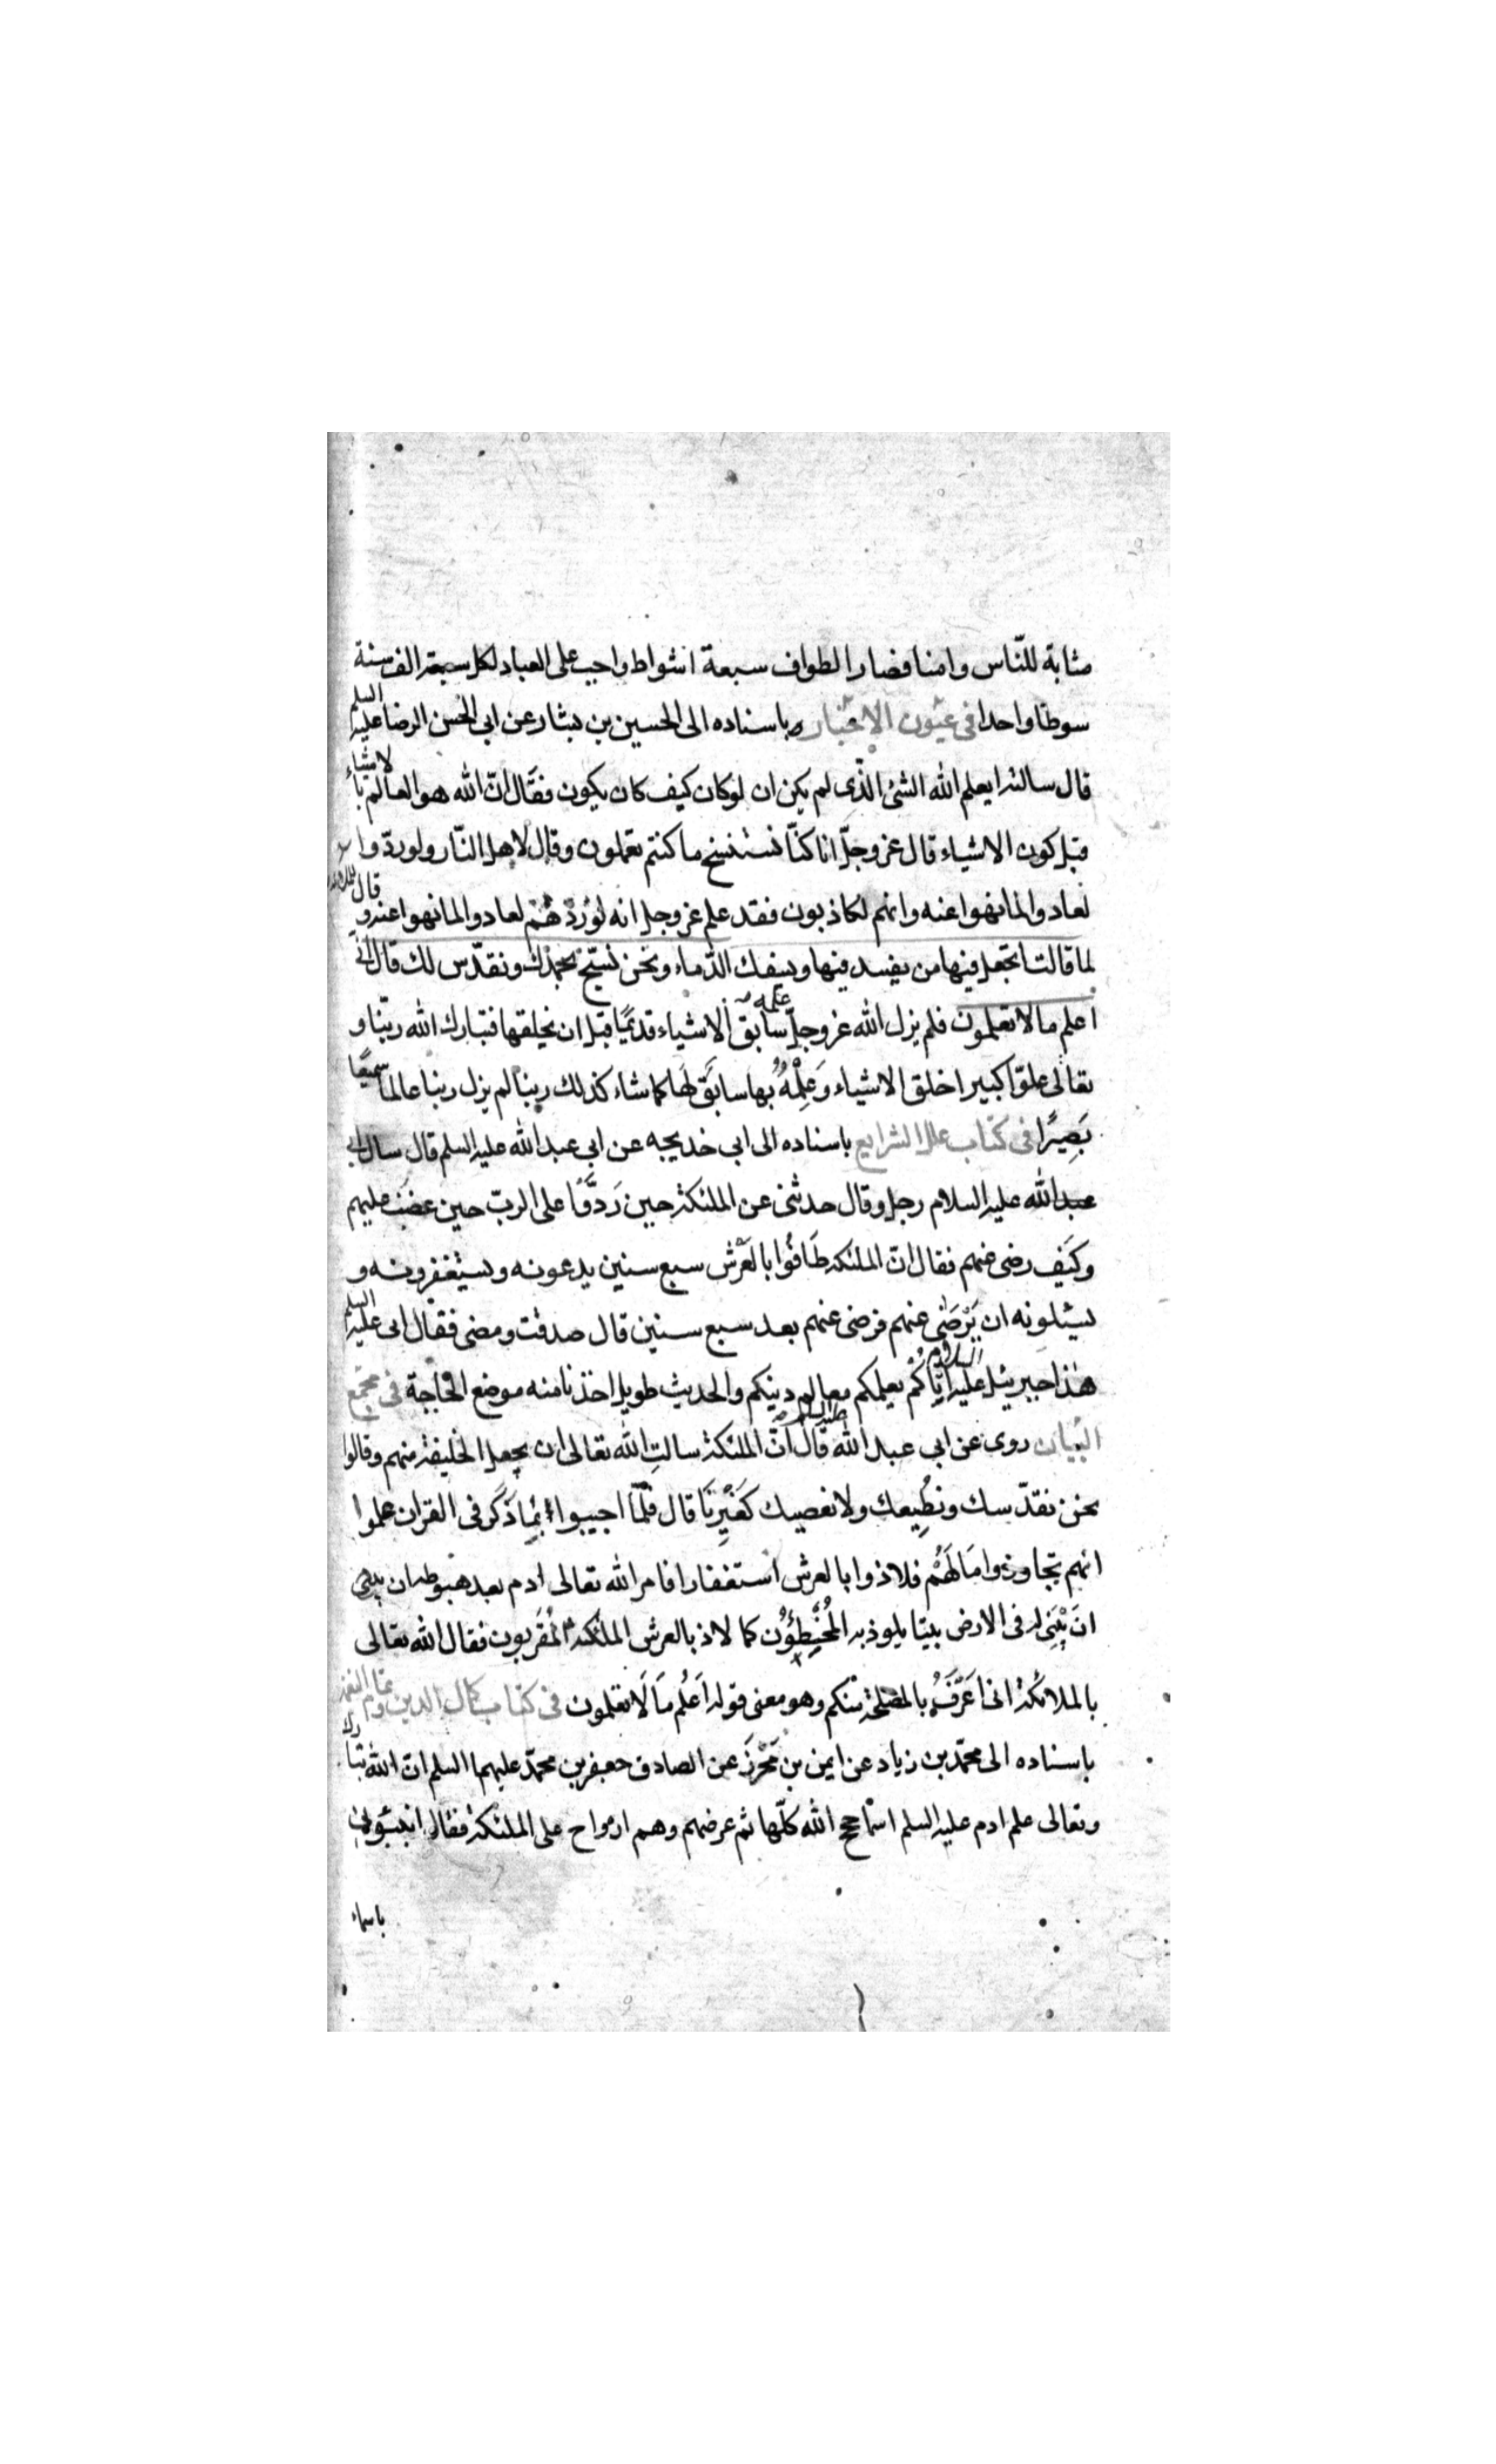 مثابة للنّاس وامنا فصار الطواف سبعة اشواط واجب على العباد لكل سبعة الف سنة
سوطا واحدا فى عيون الاخبار وباسناده الى الحسين بن بشار عن ابى الحسن الرضا عليه السلم
قال سالته ايعلم الله الشئ الّذى لم يكن ان لو كان كيف كان يكون فقال انّ الله هو العالم بالاشياء
قبل كون الاشياء قال عز وجلّ انا كنّا نستنسخ ما كنتم تعملون وقال لاهل النّار ولو ردّوا
لعادوا لما نهوا عنه وانهم لكاذبون فقد علم عز وجل انه لو رُدّهُمْ لعادوا لما نهوا عنه وقال للملائكة
لما قالت اتجعل فيها من يفسد فيها ويسفك الدّماء ونحن نسبّح بحمدك ونقدّس لك قال انّى
اعلم ما لا تعلمون فلم يزل الله عز وجلّ علمه سابق الاشياء قديمًا قبل ان يخلقها فتبارك الله ربّنا و
تعالى علوّا كبيرا خلق الاشياء وَعِلْمُهُ بها سابَق لَها كما شاء كذلك ربنا لم يزل ربنا عالما سميعًا
بَصِيرًا فى كتاب علل الشرايع باسناده الى ابى خديجه عن ابى عبد الله عليه السلم قال سال ابى
عبد الله عليه السلام رجل وقال حدثنى عن الملئكة حين رَدّوُا على الربّ حين غضب عليهم
وكَيف رضى عنهم فقال انّ الملئكه طَافُوا بالعَرْش سبع سنين يدعونه ويستغفرونه و
يسئلونه ان يَرْضَى عنهم فرضى عنهم بعد سبع سنين قال صدقت ومضى فقال ابى عليه السلم
هذا جبرئيل عليه السلام اتاكُمْ يعلمكم معالم دينكم والحديث طويل اخذنا منه موضع الحاجة فى مجمع
البيان روى عن ابى عبد الله عليه السلام قال انّ الملئكة سالتِ الله تعالى ان يجعل الخليفة منهم وقالوا
نحن نقدّسك ونُطِيعك ولا نعصيك كَغَيْرِنَا قال فلمّا اجيبوا بِمَا ذَكَر فى القران علموا
انهم تجاوزوا مَا لَهُمْ فلاذوا بالعرش استغفارا فامر الله تعالى ادم بعد هبوطه ان يبنى
انَ يَبْنِى له فى الارض بيتا يلوذ به المُخْطِؤُن كما لاذ بالعرش الملئكة المُقَربون فقال الله تعالى
بالملائكة انى اَعَرَفُ بالمصلحة منكم وهو معنى قوله اَعْلُم مَا لَا تعلمون فى كتاب كمال الدين وتمام النعمة
باسناده الى محمّد بن زياد عن ايمن بن مَحْرَز عن الصادق جعفر بن محمّد عليهما السلم انّ الله تبارك
وتعالى علم ادم عليه السلم اسماء حجج الله كلّها ثم عرضهم وهم ارواح على الملئكة فقال انبئونى
باسماء